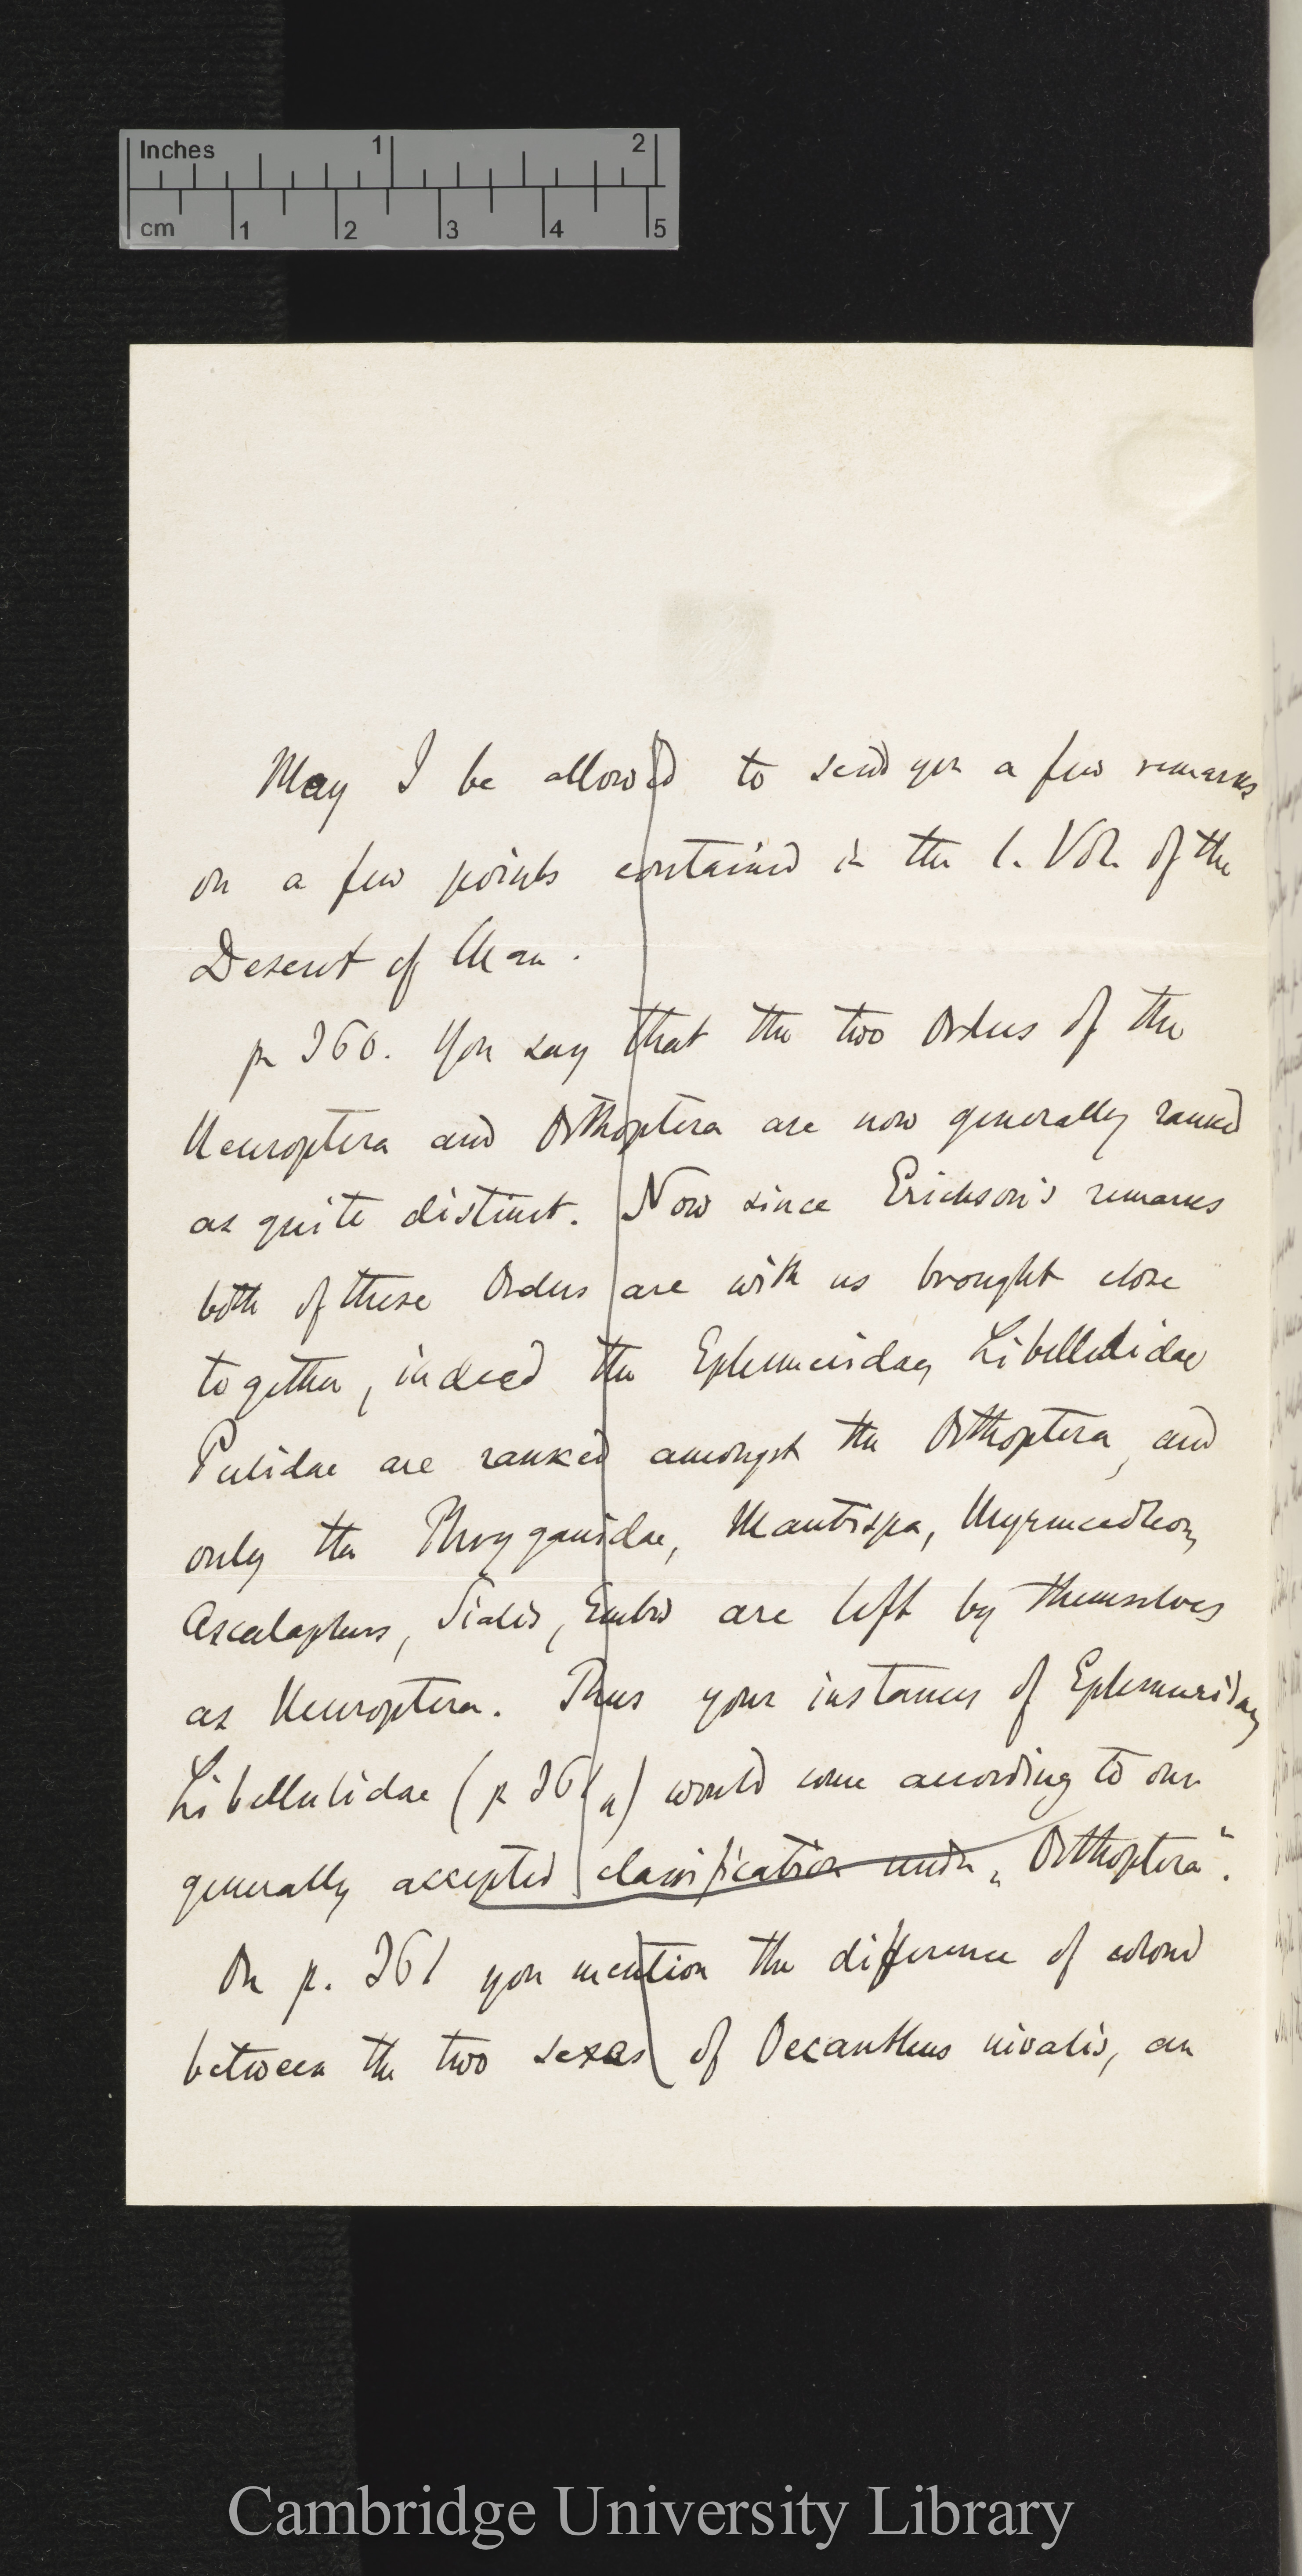 Inches 1 2
cm 1 2 3 4 5
May I be allowed to send you a few remarks
on a few points contained in the 1. Vol. of the
Descent of Man.
p 360. You say that the two Orders of the
Neuroptera and Orthoptera are now generally ranked
as quite distinct. Now since Erichson's remarks
both of these Orders are with us brought close
together, indeed the Ephemeridae, Libellulidae
Perlidae are ranked amongst the Orthoptera, and
only the Phryganidae, Mantispa, Myrmecoleon,
Ascalaphus, Sialis, are left by themselves
as Neuroptera. Thus your instances of Ephemeridae,
Libellulidae (p 361) would come according to our
generally accepted classification under „Orthoptera“.
On p. 361 you mention the difference of colour
between the two sexes of Oecanthus nivalis, an
Cambridge University Library